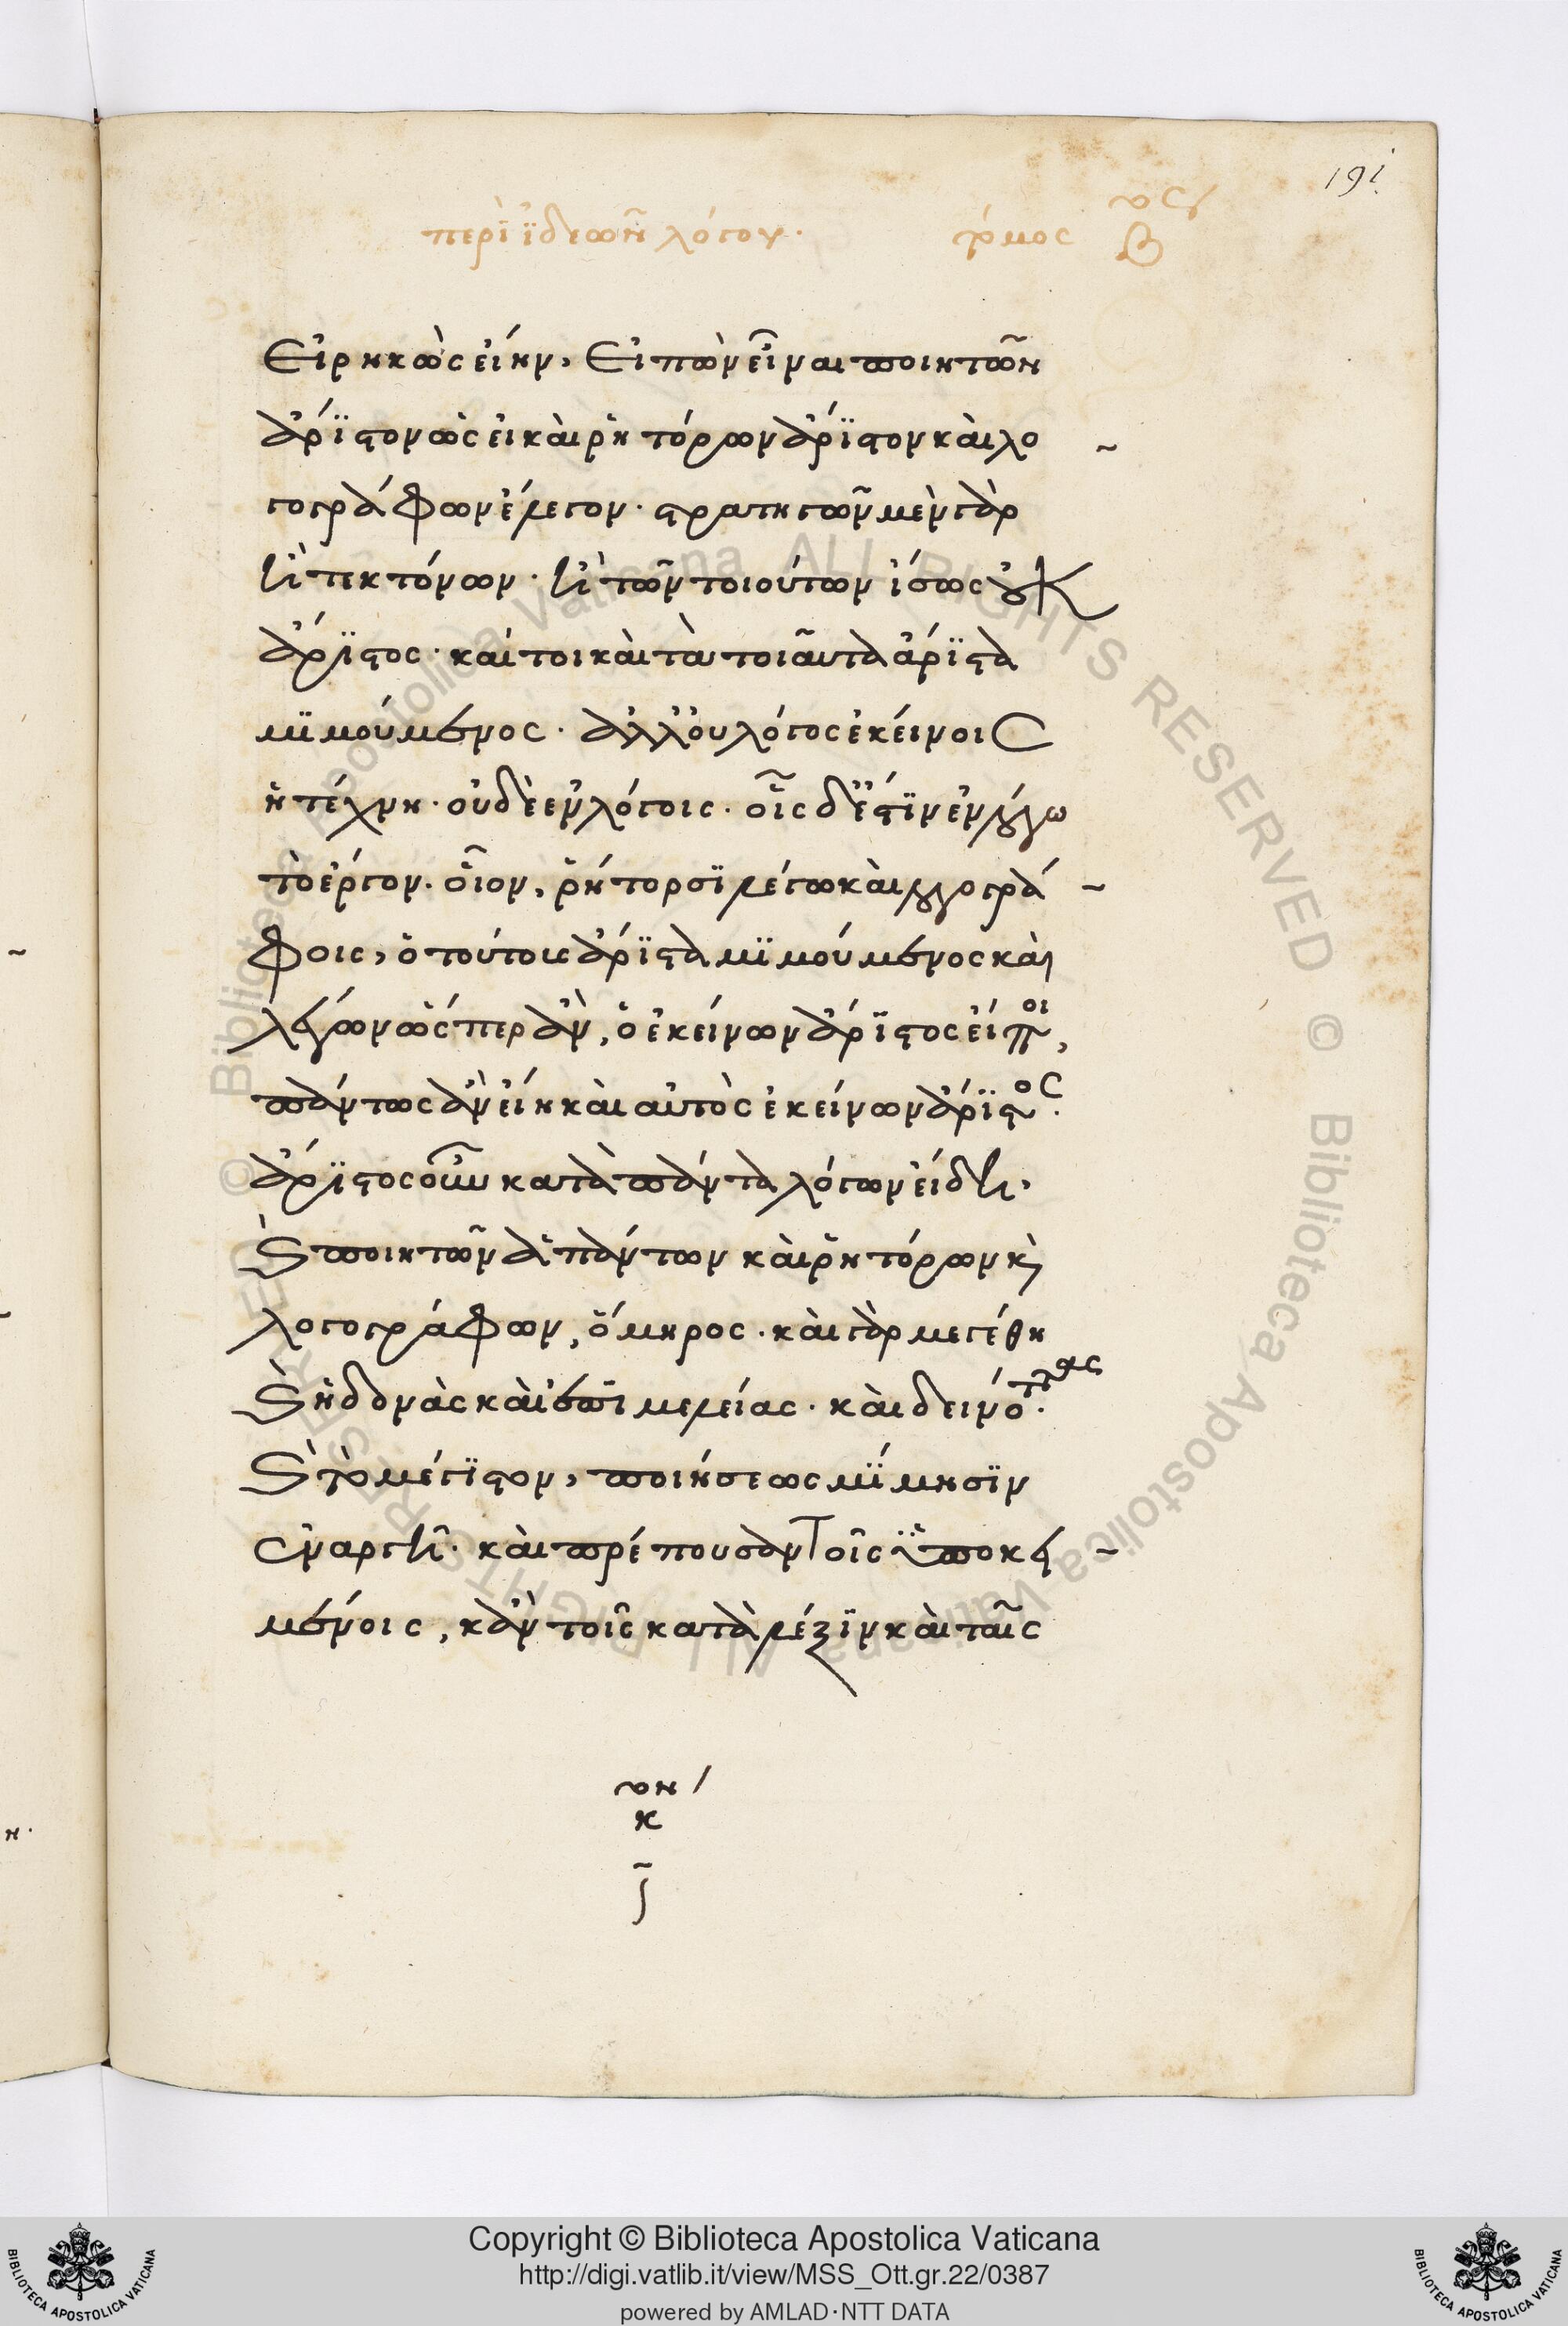 191
περὶ ϊδεῶν λόγου. τόμος β ος
Εἰρηκὼς εἴην, Εἰπὼν εἶναι ποιητῶν
ἄρϊστον ὡς εἰ καὶ ῥητόρων ἄρϊστον καὶ λο
γογράφων ἔλεγον · στρατηγῶν μὲν γὰρ
ἢ τεκτόνων · ἢ τῶν τοιούτων ἴσως οὐκ
ἄρϊστος · καίτοι καὶ τὰ τοιαῦτα ἄρϊστα
μϊμούμενος · ἀλλ' οὐ λόγος ἐκείνοις
ἡ τέχνη · οὐδὲ ἐν λόγοις · οἷς δ' ἔστϊν ἐν λόγω
τὸ ἔργον · οἷον, ῥήτορσϊ λέγω καὶ λογογρά
φοις, ὁ τούτους ἄρϊστα μϊμούμενος καὶ
λέγων ὥσπερ ἂν, ὁ ἐκείνων ἄρϊστος εἴποι,
πάντως ἂν εἴη καὶ αὐτὸς ἐκείνων ἄρϊστος.
ἄρϊστος οὖν κατὰ πάντα λόγων εἴδη,
καὶ ποιητῶν ἁπάντων καὶ ῥητόρων κὶ
λογογράφων, ὅμηρος · καὶ γὰρ μεγέθη
καὶ ἡδονὰς καὶ ἐπιμελείας · καὶ δεινότητας ·
καὶ τὸ μέγϊστον, ποιήσεως μΐμησϊν
ἐναργῆ · καὶ πρέπουσαν τοῖς ϋποκει
μένοις, κἂν τοῖς κατὰ λέξϊν καὶ ταῖς